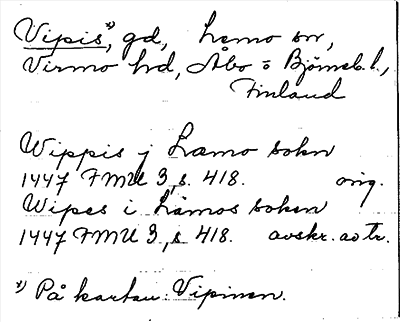 Vipis*), gd, Lemo sn,
Virmo hd, Åbo o Björneb. l.,
Finland
Wippis j Læmo sokn
1447 FMU 3, s. 418. orig.
Wipes i Lämos soken
1447 FMU 3, s. 418. avskr. av tr.
*) På kartan: Vipinen.